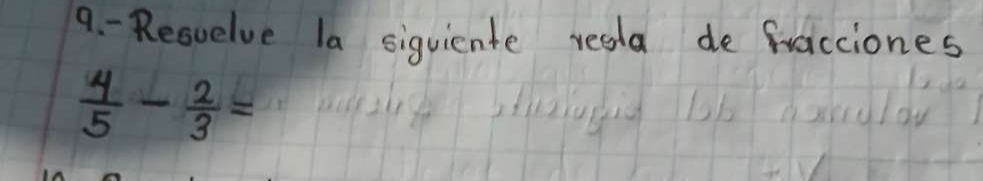 9.- Resuelve la siguiente resta de fracciones
4/5 - 2/3 =